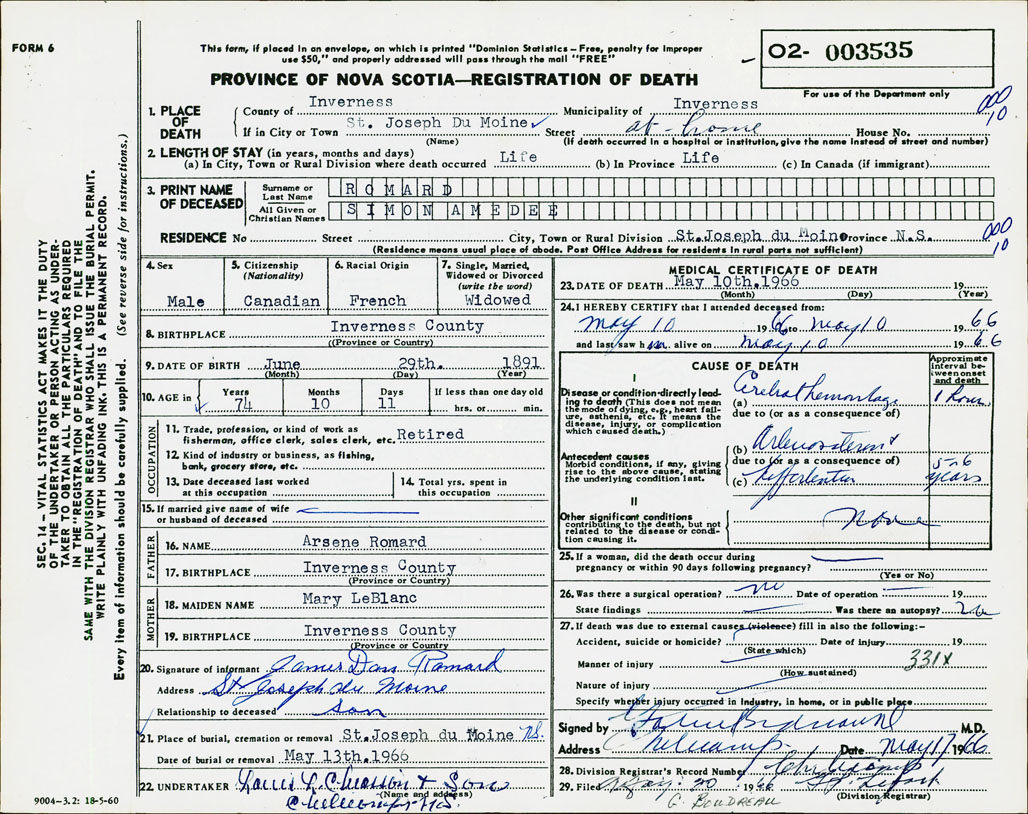 FORM 6
This form, if placed in an envelope, on which is printed "Dominion Statistics – Free, penalty for improper
use $50," and properly addressed will pass through the mail "FREE"
PROVINCE OF NOVA SCOTIA—REGISTRATION OF DEATH
02- 003535
For use of the Department only
SEC. 14 – VITAL STATISTICS ACT MAKES IT THE DUTY
OF THE UNDERTAKER OR PERSON ACTING AS UNDER-
TAKER TO OBTAIN ALL THE PARTICULARS REQUIRED
IN THE "REGISTRATION OF DEATH" AND TO FILE THE
SAME WITH THE DIVISION REGISTRAR WHO SHALL ISSUE THE BURIAL PERMIT.
WRITE PLAINLY WITH UNFADING INK. THIS IS A PERMANENT RECORD.
Every item of information should be carefully supplied. (See reverse side for instructions.)
1. PLACE OF DEATH
County of Inverness Municipality of Inverness 000 10
If in City or Town St. Joseph Du Moine Street at home House No.
(Name) (If death occurred in a hospital or institution, give the name instead of street and number)
2. LENGTH OF STAY (in years, months and days)
(a) In City, Town or Rural Division where death occurred Life (b) In Province Life (c) In Canada (if immigrant)
3. PRINT NAME OF DECEASED
Surname or Last Name ROMARD
All Given or Christian Names SIMON AMEDEE
RESIDENCE No Street City, Town or Rural Division St.Joseph du Moine Province N.S. 000 10
(Residence means usual place of abode. Post Office Address for residents in rural parts not sufficient)
4. Sex Male
5. Citizenship (Nationality) Canadian
6. Racial Origin French
7. Single, Married, Widowed or Divorced (write the word) Widowed
8. BIRTHPLACE Inverness County
((Province or Country)
9. DATE OF BIRTH June 29th. 1891
(Month) (Day) (Year)
10. AGE in Years 74 Months 10 Days 11 If less than one day old hrs. or min.
OCCUPATION
11. Trade, profession, or kind of work as
fisherman, office clerk, sales clerk, etc. Retired
12. Kind of industry or business, as fishing,
bank, grocery store, etc.
13. Date deceased last worked
at this occupation
14. Total yrs. spent in
this occupation
15. If married give name of wife
or husband of deceased
FATHER
16. NAME Arsene Romard
17. BIRTHPLACE Inverness County
(Province or Country)
MOTHER
18. MAIDEN NAME Mary LeBlanc
19. BIRTHPLACE Inverness County
(Province or Country)
20. Signature of informant James Dan Romard
Address St Joseph du Moine
Relationship to deceased son
21. Place of burial, cremation or removal St.Joseph du Moine NS.
Date of burial or removal May 13th.1966
22. UNDERTAKER Louis L. Chiasson & Son
(Name and address)
Cheticamp NS.
9004–3.2: 18-5-60
MEDICAL CERTIFICATE OF DEATH
23. DATE OF DEATH May 10th.1966 19
(Month) (Day) (Year)
24. I HEREBY CERTIFY that I attended deceased from:
May 10 1966 to May 10 1966
and last saw him alive on May 10 1966
CAUSE OF DEATH
Approximate interval between onset and death
I
Disease or condition directly lead-
ing to death (This does not mean
the mode of dying, e.g., heart fail-
ure, asthenia, etc. It means the
disease, injury, or complication
which caused death.)
(a) Cerebral hemorrhage 1 hour
due to (or as a consequence of)
Antecedent causes
Morbid conditions, if any, giving
rise to the above cause, stating
the underlying condition last.
(b)
due to (or as a consequence of)
(c) 5 or 6 years
II
Other significant conditions
contributing to the death, but not
related to the disease or condi-
tion causing it.
None
25. If a woman, did the death occur during
pregnancy or within 90 days following pregnancy?
(Yes or No)
26. Was there a surgical operation? no Date of operation 19
State findings Was there an autopsy? no
27. If death was due to external causes (violence) fill in also the following:–
Accident, suicide or homicide? Date of injury 19
(State which)
Manner of injury 331X
(How sustained)
Nature of injury
Specify whether injury occurred in industry, in home, or in public place
Signed by M.D.
Address Cheticamp Date May 17 1966
28. Division Registrar's Record Number
29. Filed May 20 1966
(Division Registrar)
G. BOUDREAU